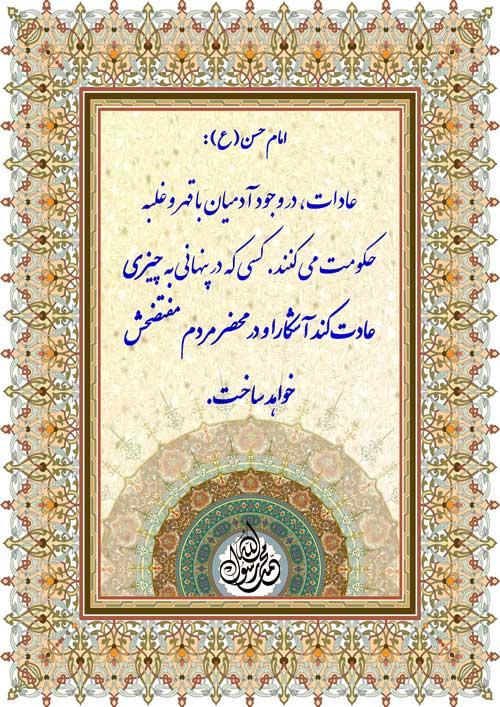 امام حسن (ع):
عادات، در وجود آدمیان با قهر و غلبه
حکومت می کنند. کسی که در پنهانی به چیزی
عادت کند آشکارا و در محضر مردم مفتضحش
خواهد ساخت.
محمد رسول الله